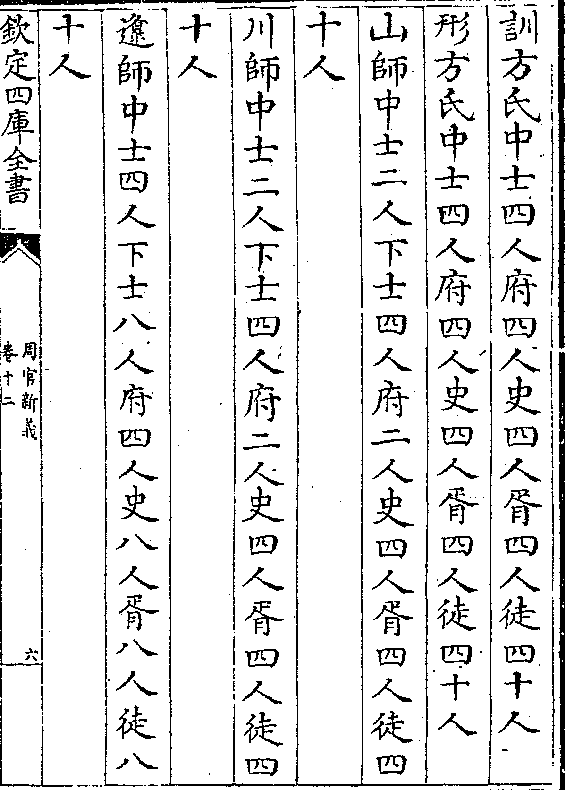 訓方氏中士四人府四人史四人胥四人徒四十人
形方氏中士四人府四人史四人胥四人徒四十人
山師中士二人下士四人府二人史四人胥四人徒四
十人
川師中士二人下士四人府二人史四人胥四人徒四
十人
邍師中士四人下士八人府四人史八人胥八人徒八
十人
欽定四庫全書
周官新義
卷十二
六